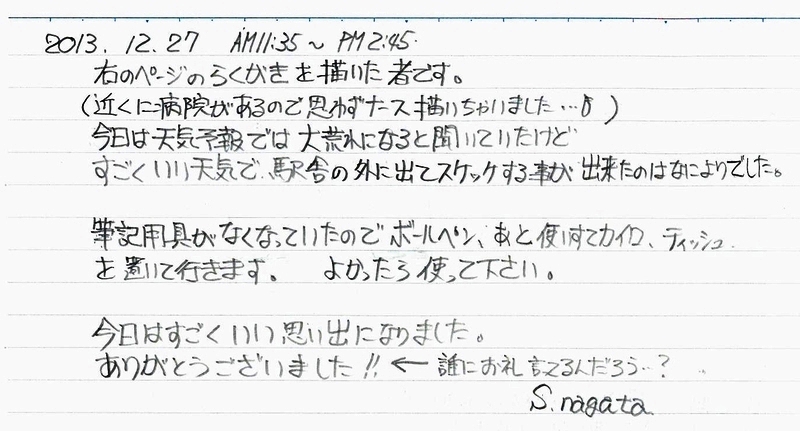 2013. 12. 27 AM11:35 ~ PM 2:45.
右のページのらくがきを描いた者です。
(近くに病院があるので思わずナース描いちゃいました…♪)
今日は天気予報では大荒れになると聞いていたけど
すごくいい天気で、駅舎の外に出てスケッチする事が出来たのはなによりでした。
筆記用具がなくなっていたのでボールペン、あと使いすてカイロ、ティッシュ
を置いて行きます。 よかったら使って下さい。
今日はすごくいい思い出になりました。
ありがとうございました!! ← 誰にお礼言ってるんだろう…?
S. nagata